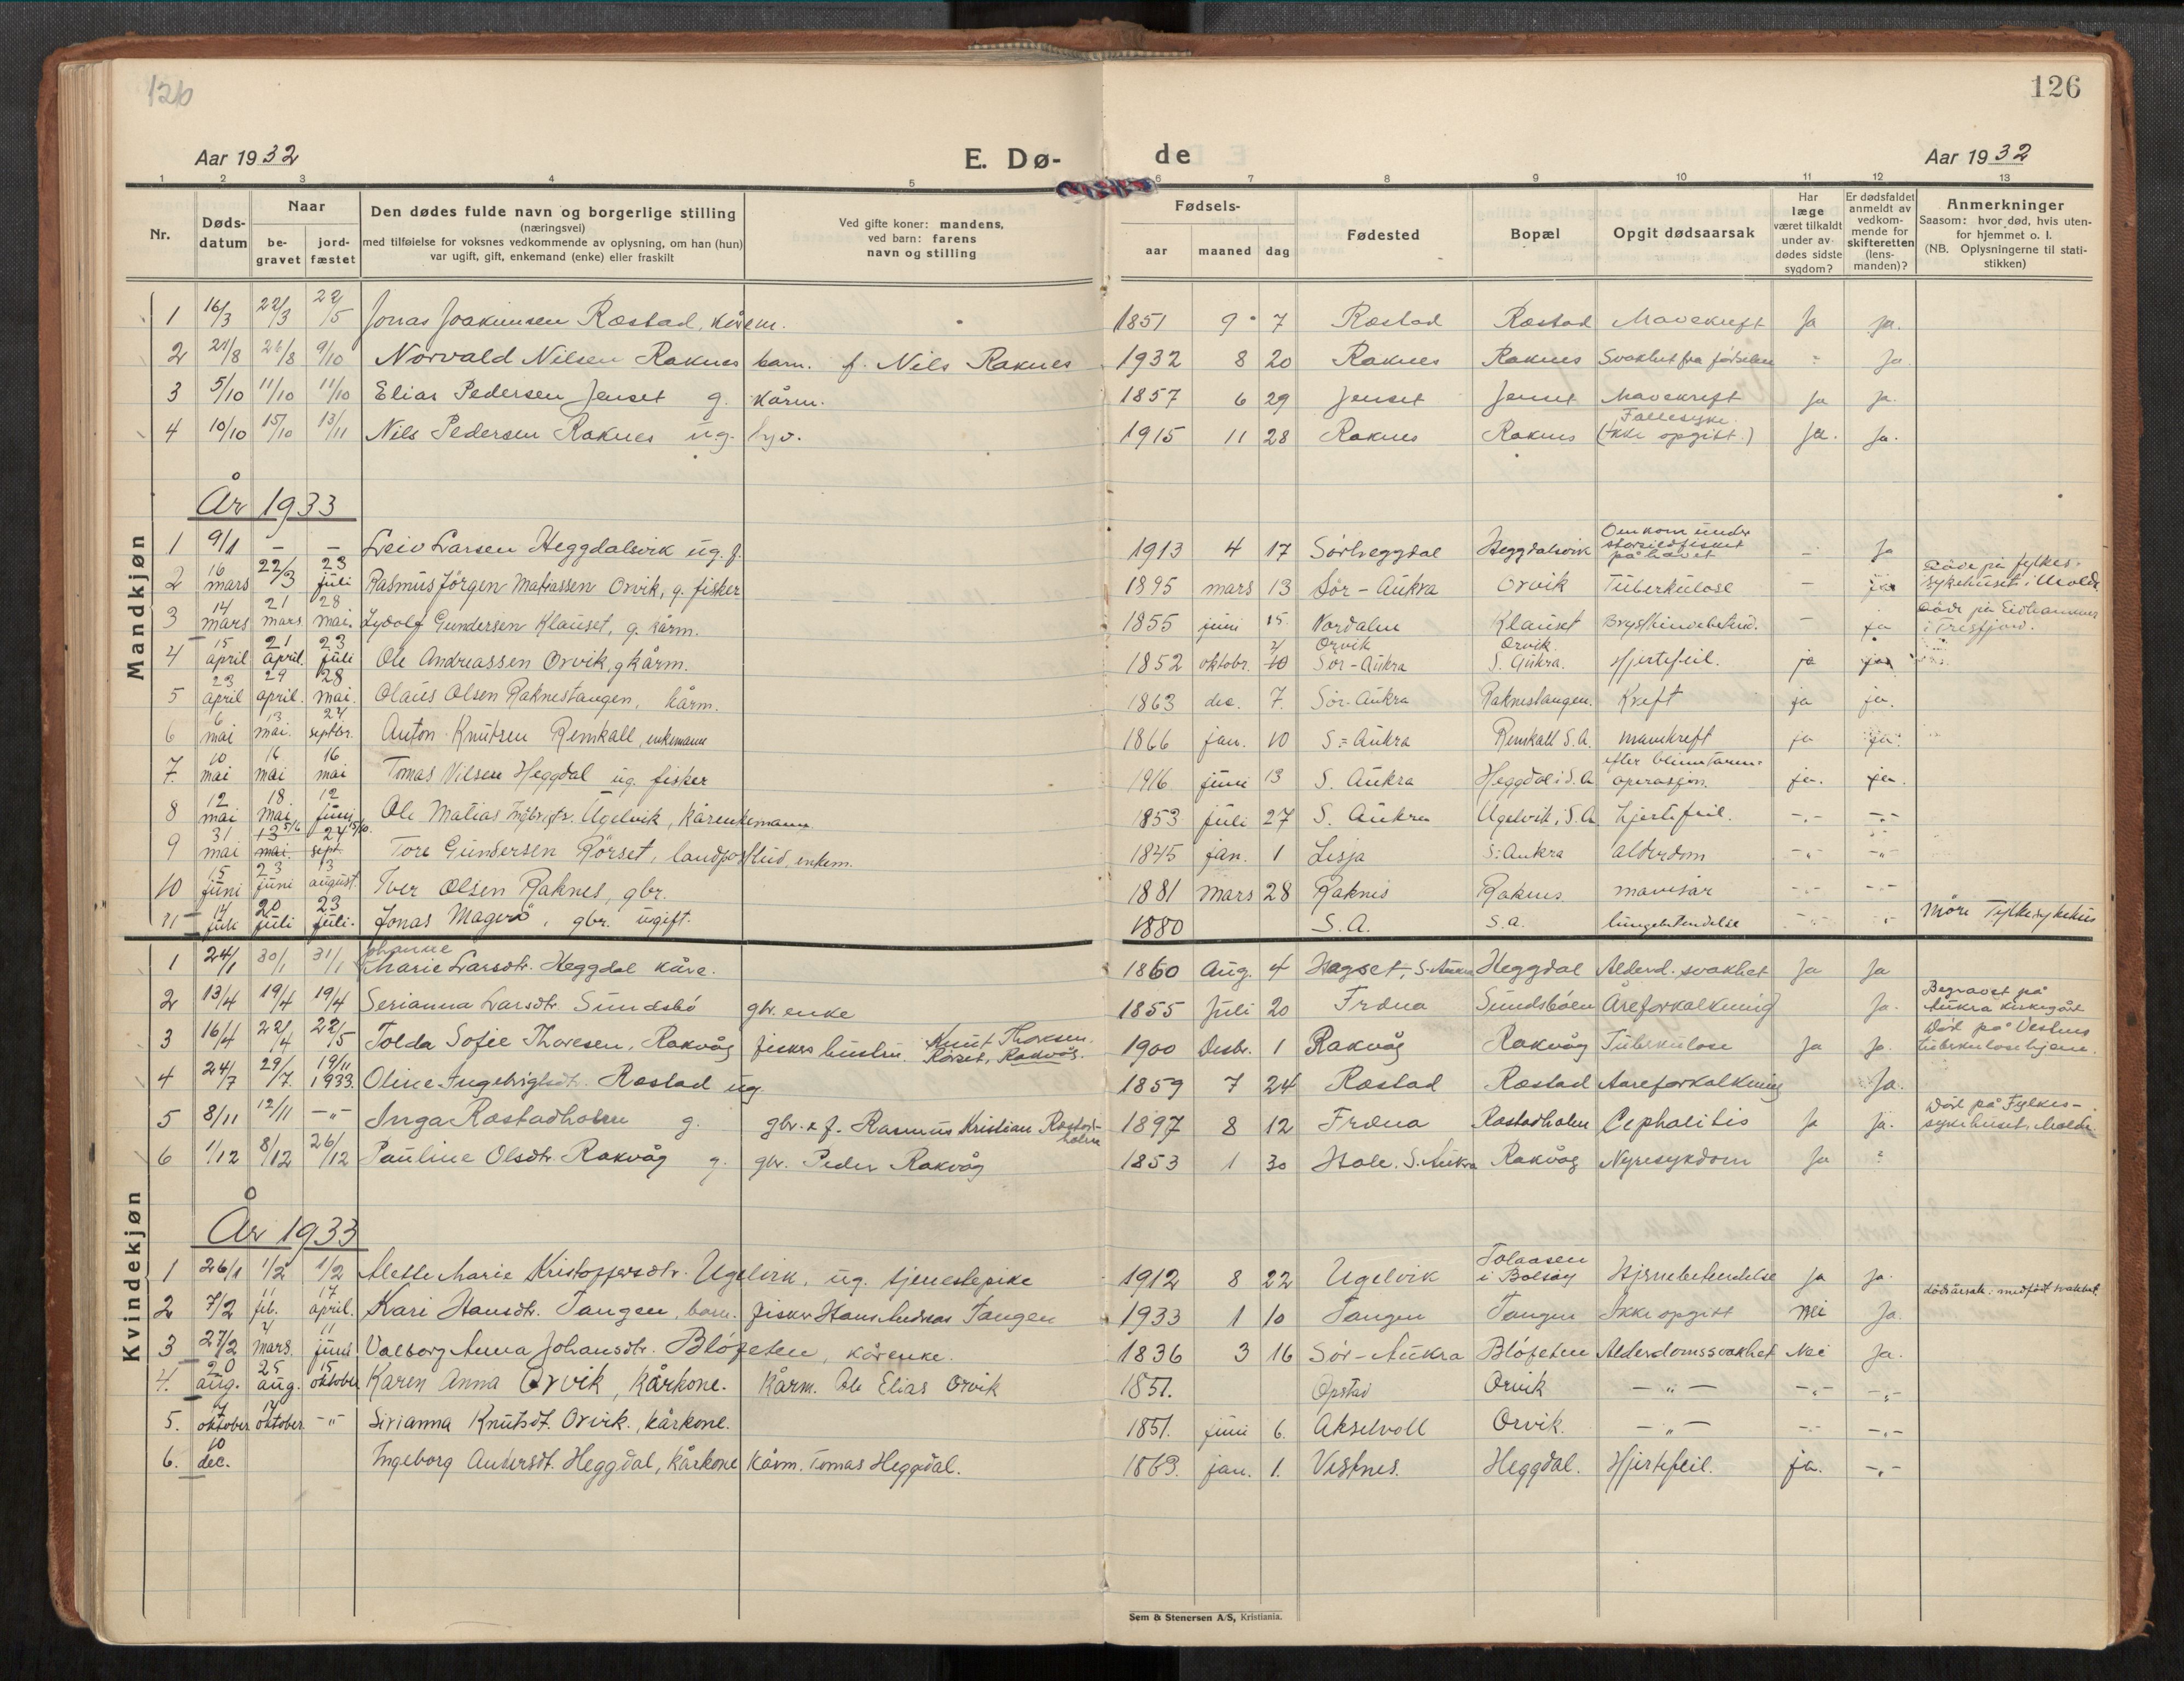 126
126
Aar 1932
E. Dø-
de
Aar 1932
1 2 3 4 5 6 7 8 9 10 11 12 13
Nr.
Døds-
datum
Naar
be-
gravet
jord-
fæstet
Den dødes fulde navn og borgerlige stilling
(næringsvei)
med tilføielse for voksnes vedkommende av oplysning, om han (hun)
var ugift, gift, enkemand (enke) eller fraskilt
Ved gifte koner: mandens,
ved barn: farens
navn og stilling
Fødsels-
aar maaned dag
Fødested
Bopæl
Opgit dødsaarsak
Har
læge
været tilkaldt
under av-
dødes sidste
sygdom?
Er dødsfaldet
anmeldt av
vedkom-
mende for
skifteretten
(lens-
manden)?
Anmerkninger
Saasom: hvor død, hvis uten-
for hjemmet o. l.
(NB. Oplysningerne til stati-
stikken)
Mandkjøn
1 16/3 22/3 22/5 Jonas Joakimsen Røstad, kårm. 1851 9 7 Røstad Røstad Mavekreft Ja ja.
2 21/8 26/8 9/10 Norvald Nilsen Raknes barn. f. Nils Raknes 1932 8 20 Raknes Raknes Svakhet fra fødselen Ja
3 5/10 11/10 11/10 Elias Pedersen Jenset g. kårm. 1857 6 29 Jenset Jenset Mavekreft Ja Ja.
4 10/10 15/10 13/11 Nils Pedersen Raknes ug. 1915 11 28 Raknes Raknes Fallesyke (Ikke opgitt.) Ja. Ja.
År 1933
1 9/1 - - Leiv Larsen Heggdalsvik ug. f. 1913 4 17 Sørheggdal Heggdalsvik Omkom under storsildfisket på havet - Ja
2 16 mars 22/3 23 juli Rasmus Jørgen Matiassen Orvik, g. fisker 1895 mars 13 Sør-Aukra Orvik Tuberkulose - Døde på fylkes- sykehuset i Molde
3 14 mars 21 mars 28 mai. Lydolf Gundersen Klauset, g. kårm. 1855 juni 15. Nordalen Klauset - ja Døde på i Tresfjord.
4 15 april 21 april. 23 juli Ole Andreassen Orvik, g kårm. 1852 oktobr. Orvik Sør-Aukra Orvik. S. Aukra. Hjertefeil. ja
5 23 april 29 april. 28 mai. Olaus Olsen Raknestangen, kårm. 1863 des. 7. Sør-Aukra Raknestangen. Kreft ja ja.
6 6 mai 13 mai. 24 septbr. Anton Knutsen Remkall, enkemann 1866 jan. 10 S.=Aukra Remkall S.A. mavekreft ja ja.
7. 10 mai 16 mai 16 mai Tomas Nilsen Heggdal ug. fisker 1916 juni 13 S. Aukra Heggdal i S.A efter blindtarm- operasjon. ja. ja.
8 12 mai 18 mai 12 juni Ole Matias Ingebrigts. Ugelvik, kårenkemann 1853 juli 27 S. Aukra Ugelvik, S.A hjertefeil. -.- -.-
9 31 mai 13 5/6 mai. 24 sept. Tore Gundersen Rørset, landpostbud, enkem. 1845 jan. 1 Lesja S: Aukra alderdom -„- -„-
10 15 juni 23 juni 13 august. Iver Olsen Raknes, gbr. 1881 mars 28 Raknes Raknes. mavesår -.- -.-
11 14 juli 20 juli 23 juli. Jonas Magerø, gbr. ugift. 1880 S.A. S.a. lungebetendelse Møre Fylkesykehus
Kvindekjøn
1 24/1 30/1 31/1 Johanne Marie Larsdtr. Heggdal kåre. 1860 Aug. 4 Hagset, S. Aukra Heggdal Alderd. svakhet Ja Ja
2 13/4 19/4 19/4 Serianna Larsdtr. Sundsbø gbr. enke 1855 Juli 20 Fræna Sundsbøen Åreforkalkning Ja. Begravet på Aukra kirkegård
3 16/4 22/4 22/5 Tolda Sofie Thoresen, Rakvåg fiskers hustru Knut Thoresen. Rørset, Rakvåg. 1900 Desbr. 1 Rakvåg Rakvåg Tuberkulose Ja Ja. Død på Vestnes tuberkulosehjem.
4 24/7 29/7. 19/11 1933. Oline Ingebrigtsdtr. Røstad ug 1859 7 24 Røstad Røstad Aareforkalkning Ja.
5 8/11 12/11 -„- Inga Røstadholm g. gbr. & f. Rasmus Kristian Røstad- holm 1897 8 12 Fræna Røstadholm Cephalitis Ja Ja. Død på Fylkes- sykehuset, Molde
6 1/12 8/12 26/12 Pauline Olsdtr. Rakvåg g. gbr. Peder Rakvåg 1853 1 30 Hole. S. Aukra Rakvåg Nyresykdom Ja ?
År 1933
1 26/1 1/2 1/2 Alette Marie Kristoffersdtr. Ugelvik, ug. tjenestepike 1912 8 22 Ugelvik Tolaasen i Bolsøy Hjernebetendelse Ja Ja.
2 7/2 11 feb. 17 april. Kari Hansdtr. Tangen, barn. fisker Hans Andreas Tangen 1933 1 10 Tangen Tangen Ikke opgitt Nei Ja. dødsårsak: medfødt svakhet.
3 27/2 4 mars. 11 juni Valborg Anna Johansdtr. Bløfeten, kårenke. 1836 3 16 Sør-Aukra Bløfeten Alderdomssvakhet Nei Ja.
4. 20 aug. 25 aug. 15 oktober Karen Anna Orvik, kårkone. kårm. Ole Elias Orvik 1851. Opstad Orvik -„- -„- -„-
5. 7 oktober 14 oktober. -„- Sirianna Knutsdt. Orvik., kårkone. 1851. juni 6. Akselvoll Orvik. -„- -.- -„-
6. 10 dec. Ingeborg Andersdt. Heggdal, kårkone kårm. Tomas Heggdal. 1863. jan. 1. Vestnes. Heggdal. Hjertefeil. ja. -„-
Sem & Stenersen A/S, Kristiania.